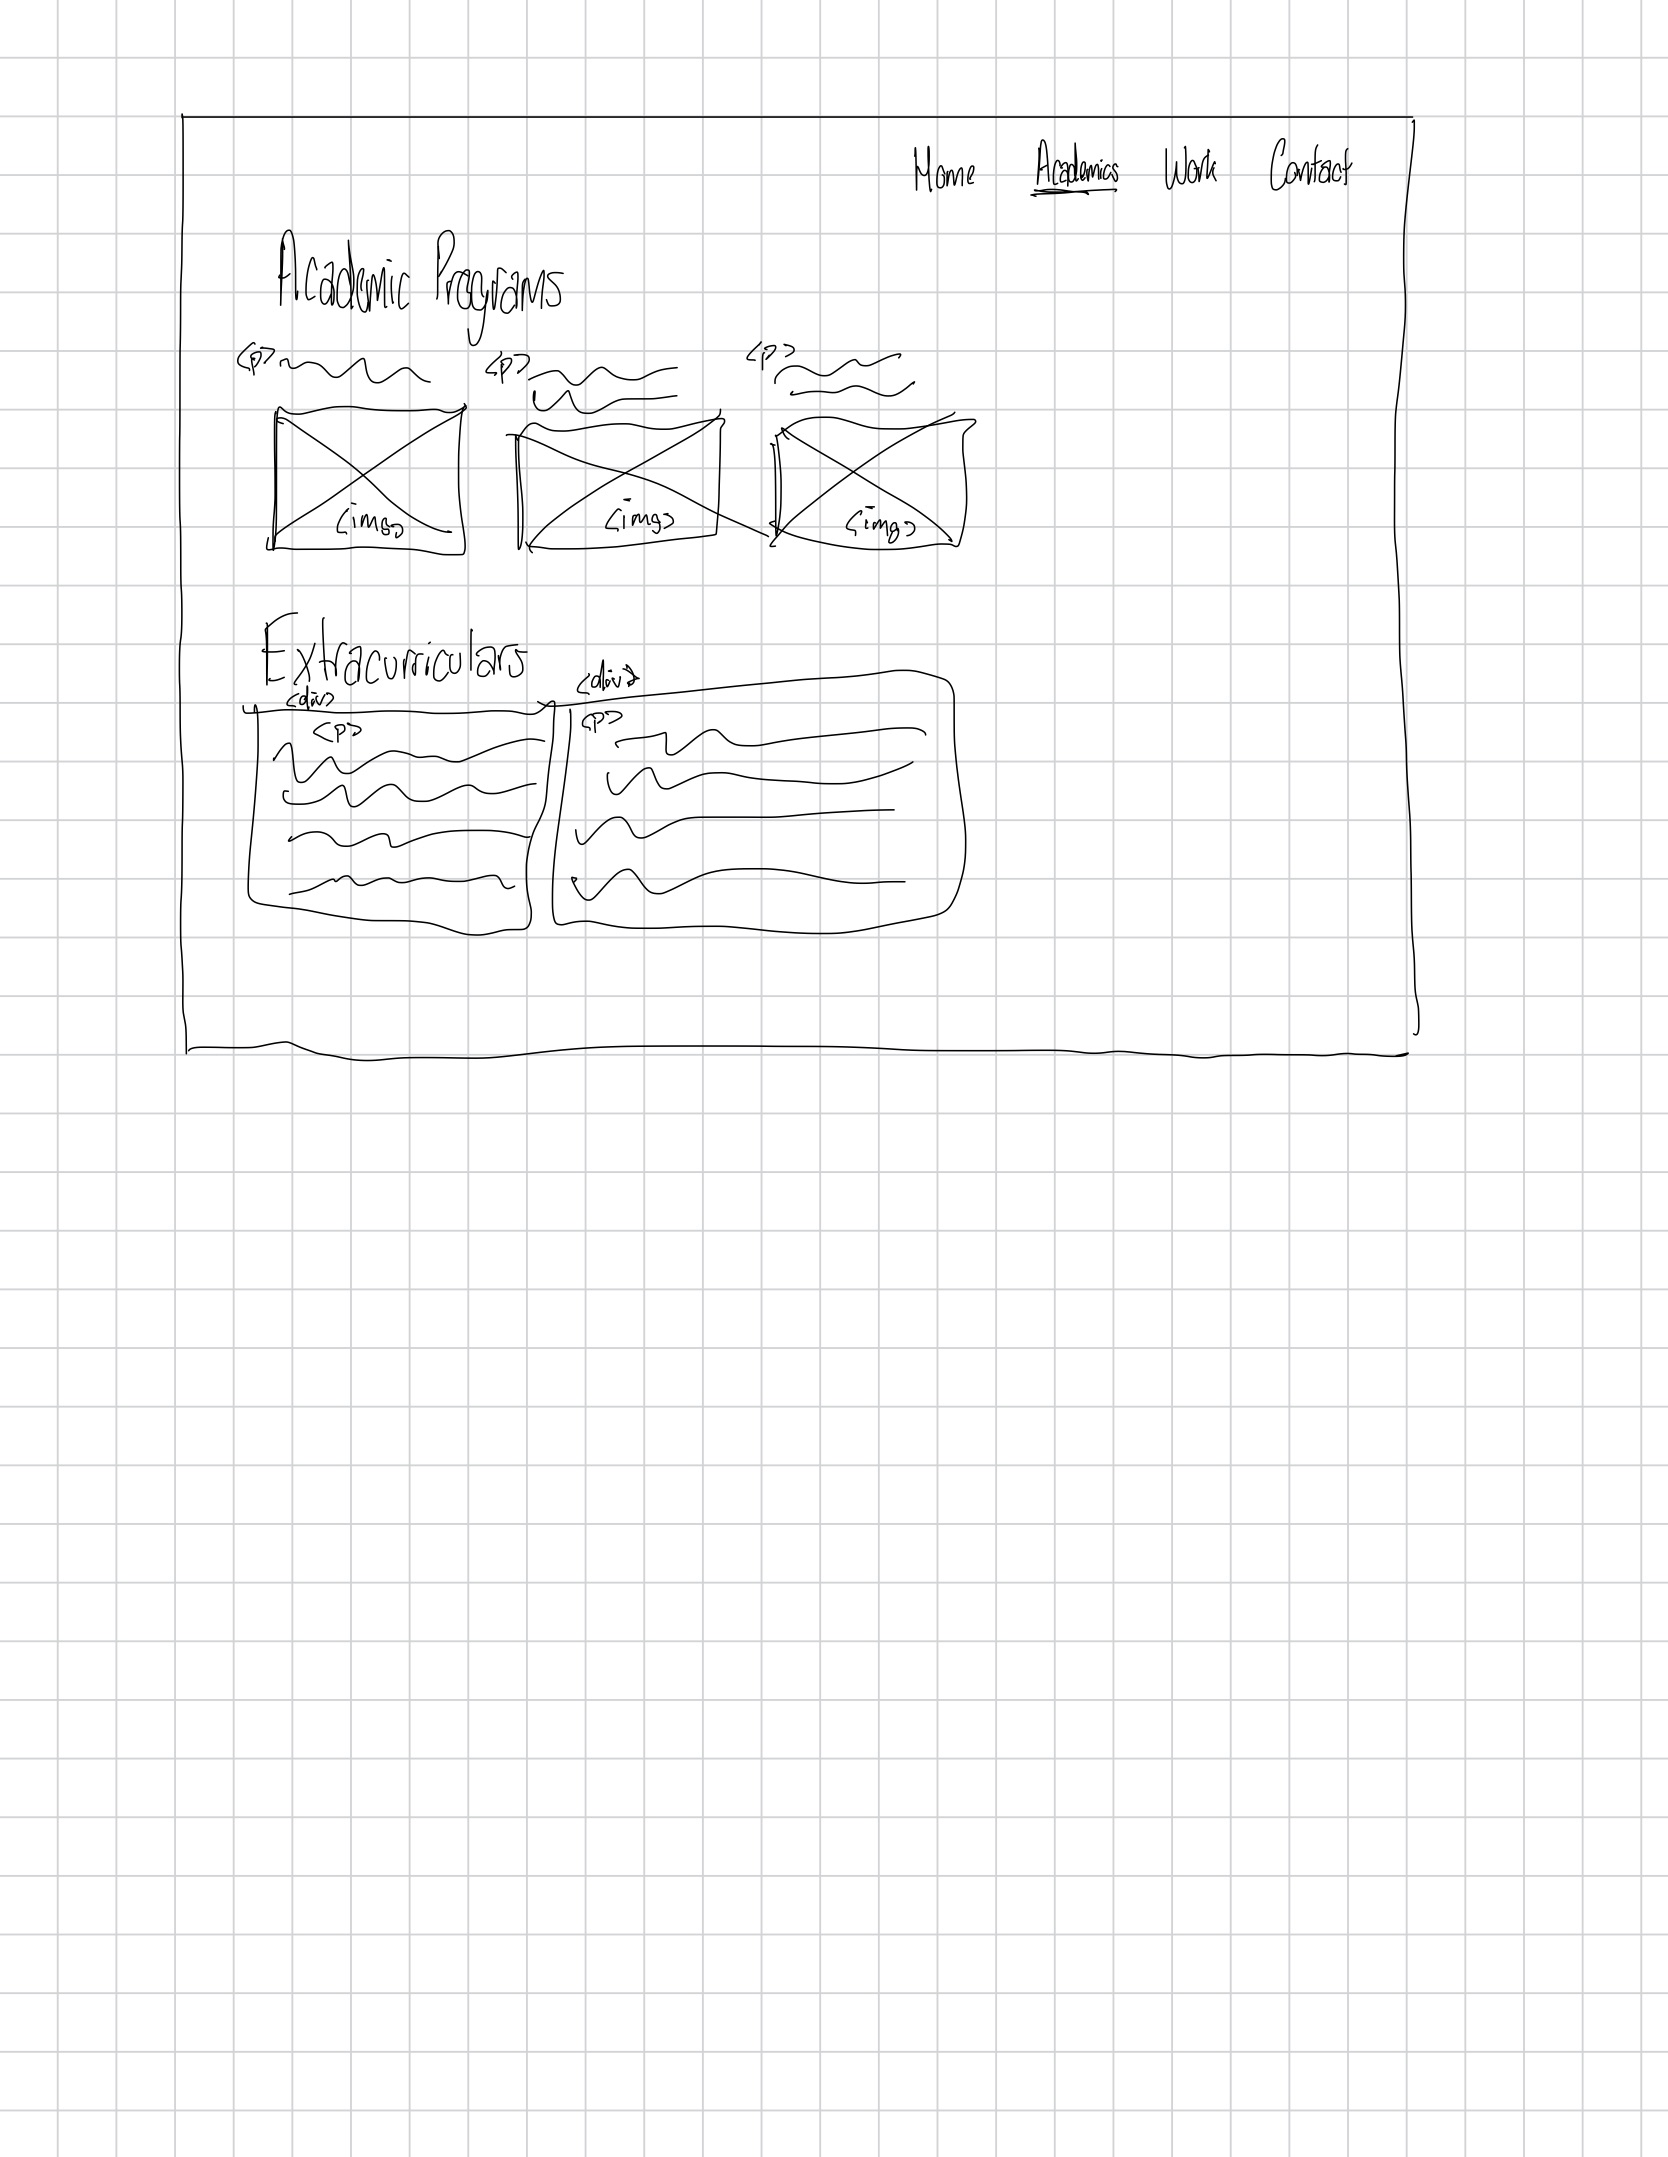 Home Academics Work Contact
Academic Programs
<p> <p> <p>
<img> <img> <img>
Extracurriculars
<div> <div>
<p> <p>